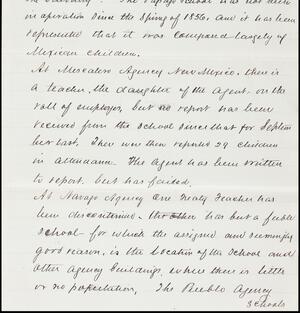 The Papago School has not been
in operation since the Spring of 1876, and it has been
represented that it was composed largely of
Mexican Children.
At Mescalero Agency New Mexico, there is
a teacher, the daughter of the Agent, on the
roll of employes, but no report has been
received from the School since that for Septem
ber last. There were then reported 29 children
in attendance. The Agent has been written
to report, but has failed.
At Navajo Agency One Treaty Teacher has
been discontinued. The other has but a feeble
School - for which the assigned and seemingly
good reason, is the location of the School and
other Agency buildings, where there is little
or no population. The Pueblo Agency
Schools